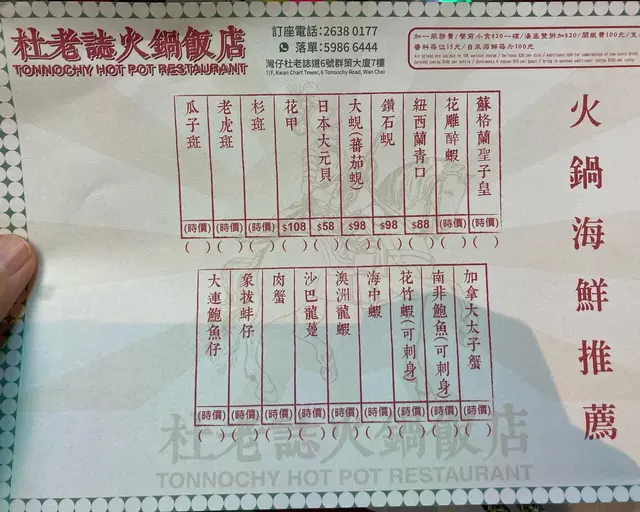 杜老誌火鍋飯店
TONNOCHY HOT POT RESTAURANT
訂座電話：2638 0177
落單：5986 6444
灣仔杜老誌道6號群策大廈7樓
7/F, Kwan Chart Tower, 6 Tonnochy Road, Wan Chai
火鍋海鮮推薦
蘇格蘭聖子皇 (時價) ( )
花雕醉蝦 (時價) ( )
紐西蘭青口 $88 ( )
鑽石蜆 $98 ( )
大蜆(蕃茄蜆) $98 ( )
日本大元貝 $58 ( )
花甲 $108 ( )
杉斑 (時價) ( )
老虎斑 (時價) ( )
瓜子斑 (時價) ( )
加拿大太子蟹 (時價) ( )
南非鮑魚(可刺身) (時價) ( )
花竹蝦(可刺身) (時價) ( )
海中蝦 (時價) ( )
澳洲龍蝦 (時價) ( )
沙巴龍躉 (時價) ( )
肉蟹 (時價) ( )
象拔蚌仔 (時價) ( )
大連鮑魚仔 (時價) ( )
杜老誌火鍋飯店
TONNOCHY HOT POT RESTAURANT